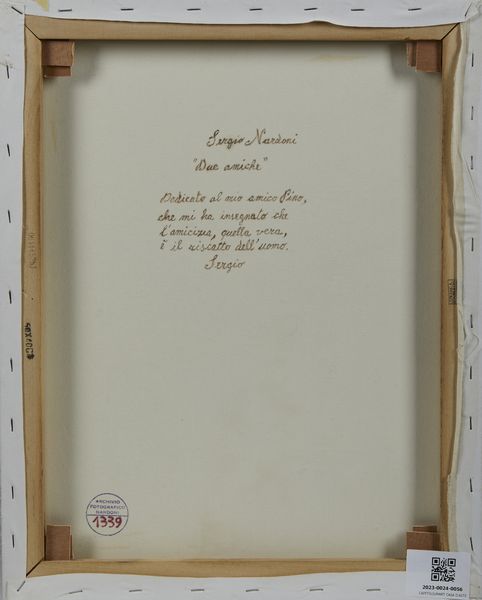 Sergio Nardoni
"Due amiche"
Dedicato al mio amico Pino,
che mi ha insegnato che
l'amicizia, quella vera,
è il riscatto dell'uomo.
Sergio
ARCHIVIO
FOTOGRAFICO
NARDONI
1339
2023-0024-0056
CAPITOLIUMART CASA D'ASTE